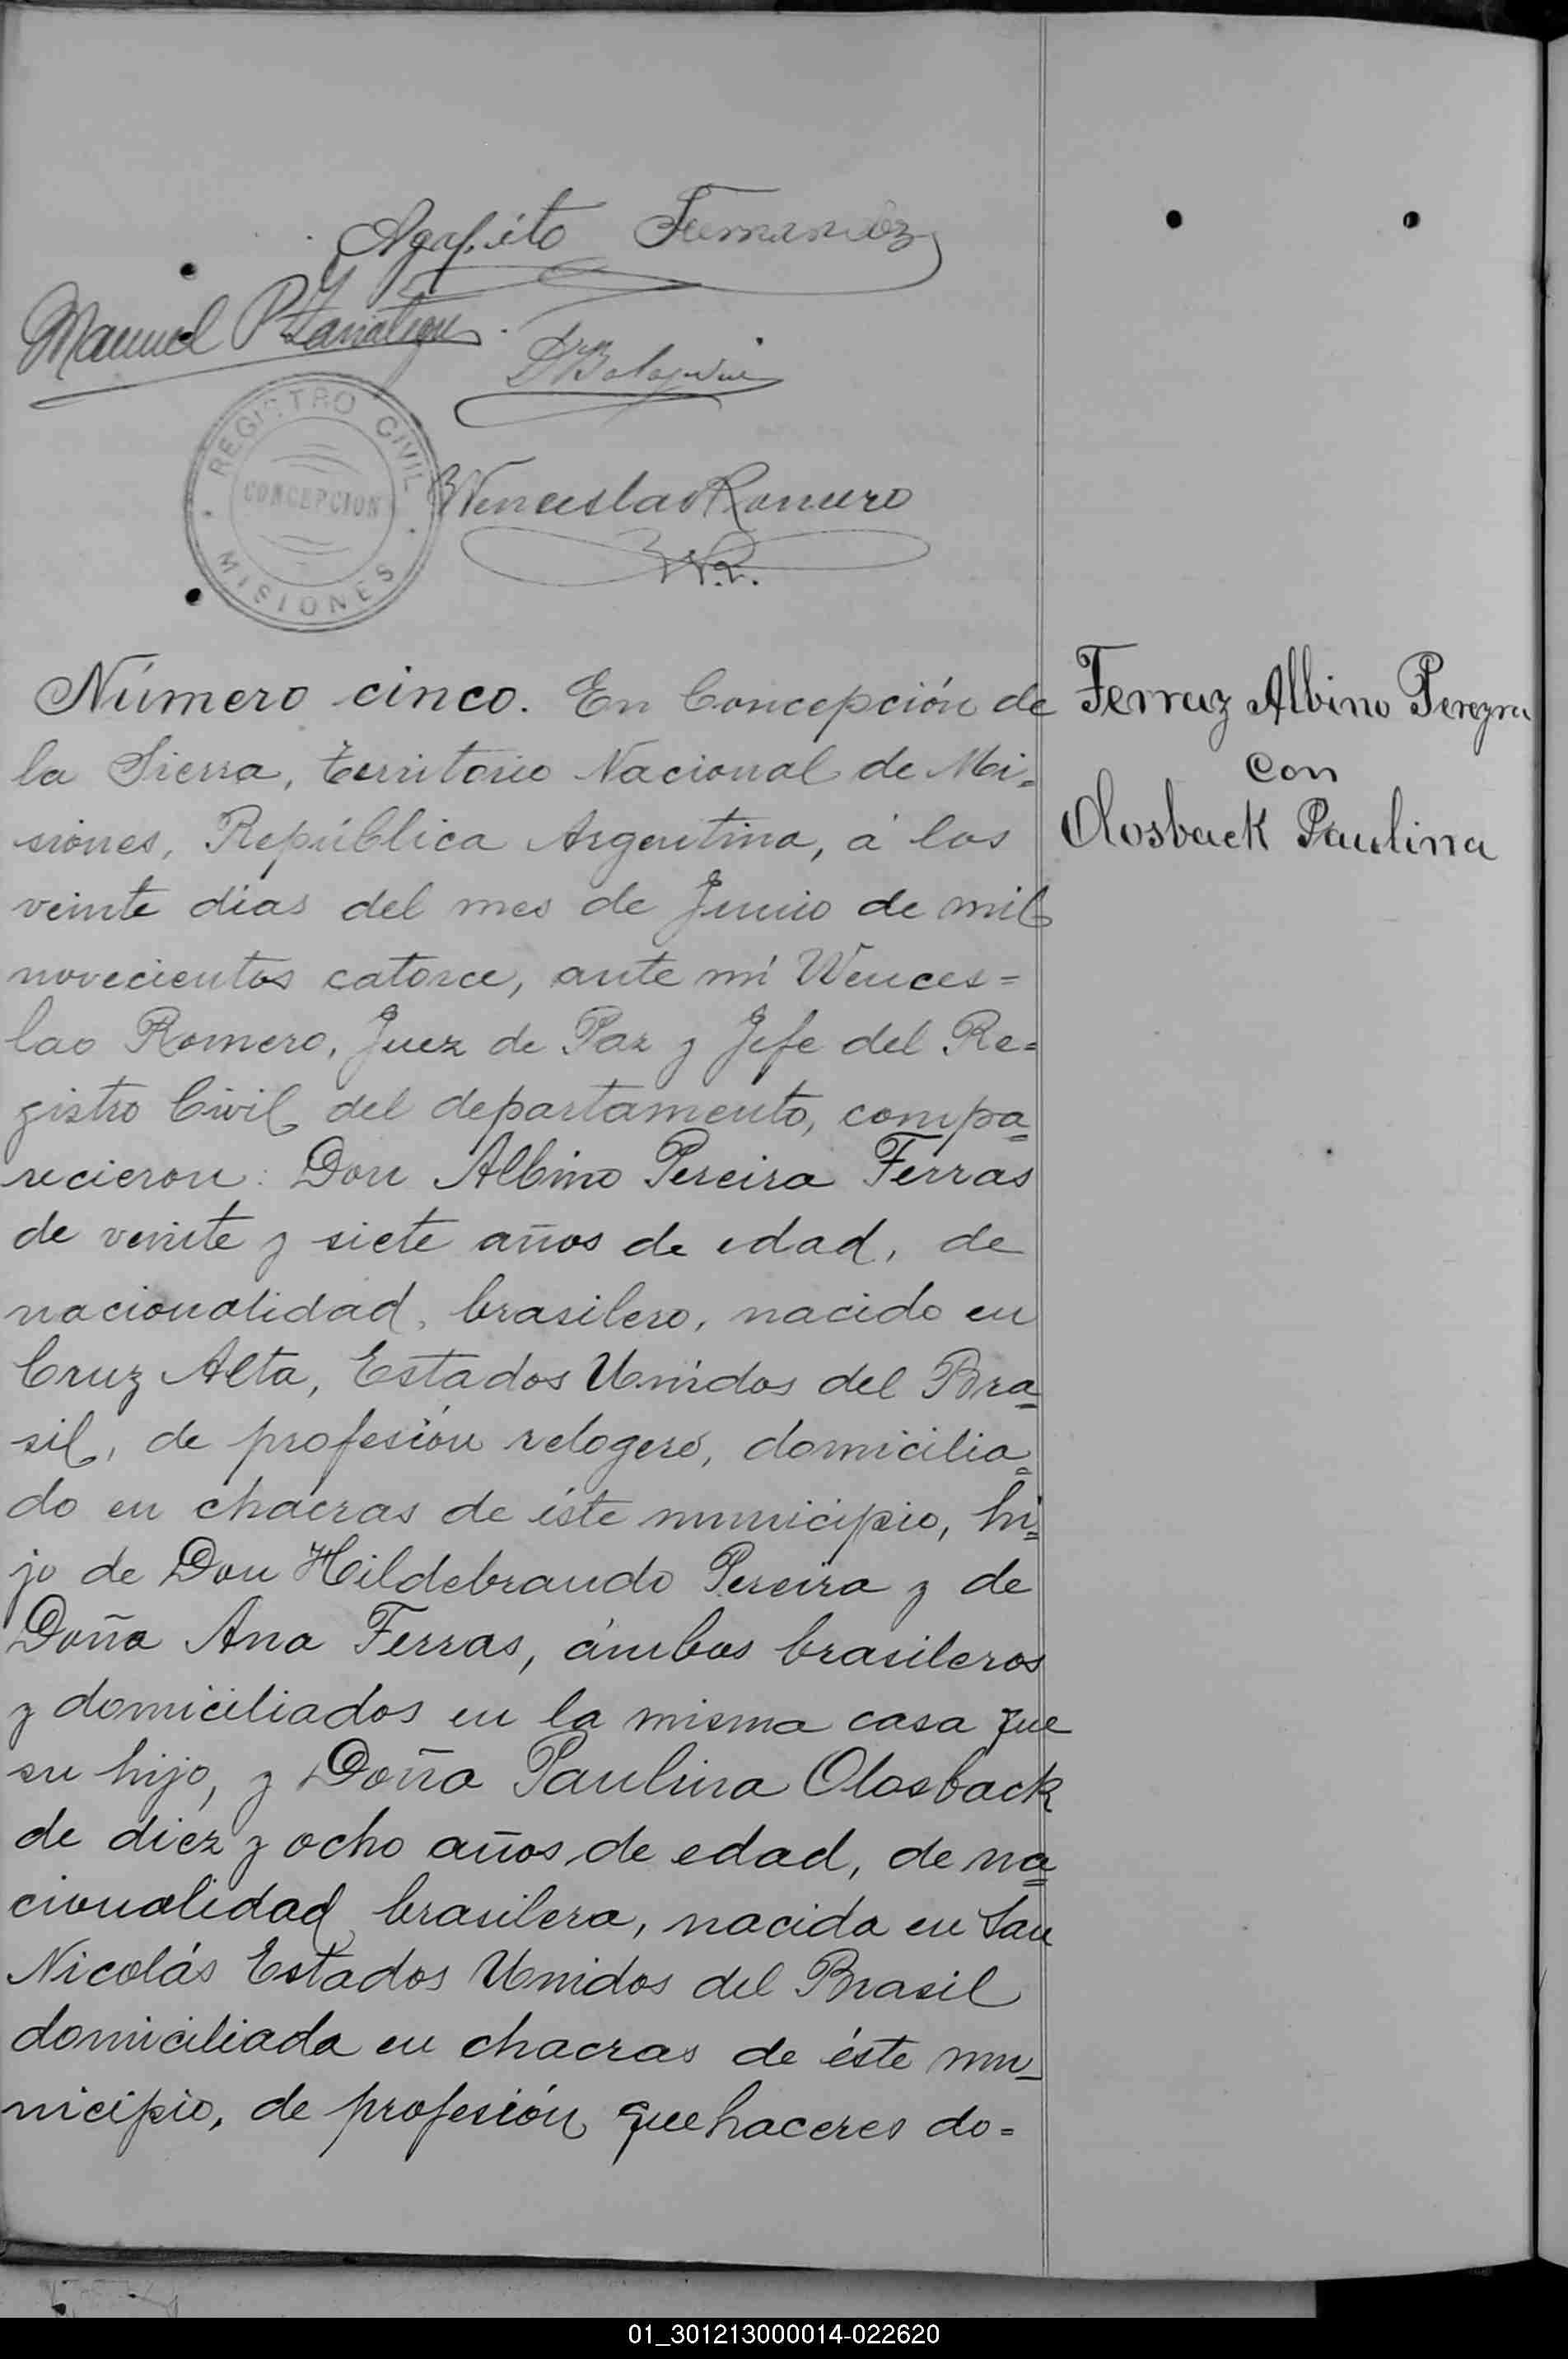 Agapito Fernandez
Manuel P.
REGISTRO CIVIL
CONCEPCION
MISIONES
Wenceslao Romero
W.R.
Número cinco. En Concepción de
la Sierra, territorio Nacional de Mi=
siones, República Argentina, á los
veinte dias del mes de Junio de mil
novecientos catorce, ante mí Wences=
lao Romero, Juez de Paz y Jefe del Re=
gistro Civil del departamento, compa=
recieron: Don Albino Pereira Ferras
de veinte y siete años de edad, de
nacionalidad, brasilero, nacido en
Cruz Alta, Estados Unidos del Bra=
sil, de profesión relogero, domicilia=
do en chacras de éste municipio, hi=
jo de Don Hildebrando Pereira y de
Doña Ana Ferras, ámbos brasileros
y domiciliados en la misma casa que
su hijo, y Doña Paulina Olosback
de diez y ocho años de edad, de na=
cionalidad brasilera, nacida en San
Nicolás Estados Unidos del Brasil
domiciliada en chacras de éste mu=
nicipio, de profesión quehaceres do=
Ferraz Albino Pereyra
Con
Olosback Paulina
01_301213000014-022620